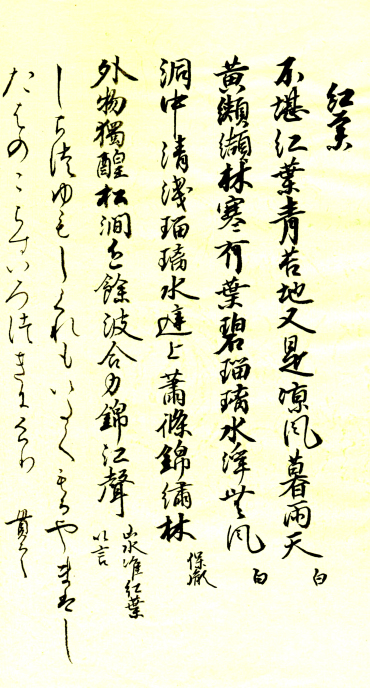 紅葉
不堪紅葉青苔地又是涼風暮雨天 白
黄纐纈林寒有葉碧瑠璃水浄無風 白
洞中清浅瑠璃水庭上蕭條錦繡林 保胤
外物獨醒松澗色餘波合力錦江聲 山水唯紅葉 以言
しらつゆもしくれもいたくもるやまはし
たはのこらすいろつきにけり 貫之